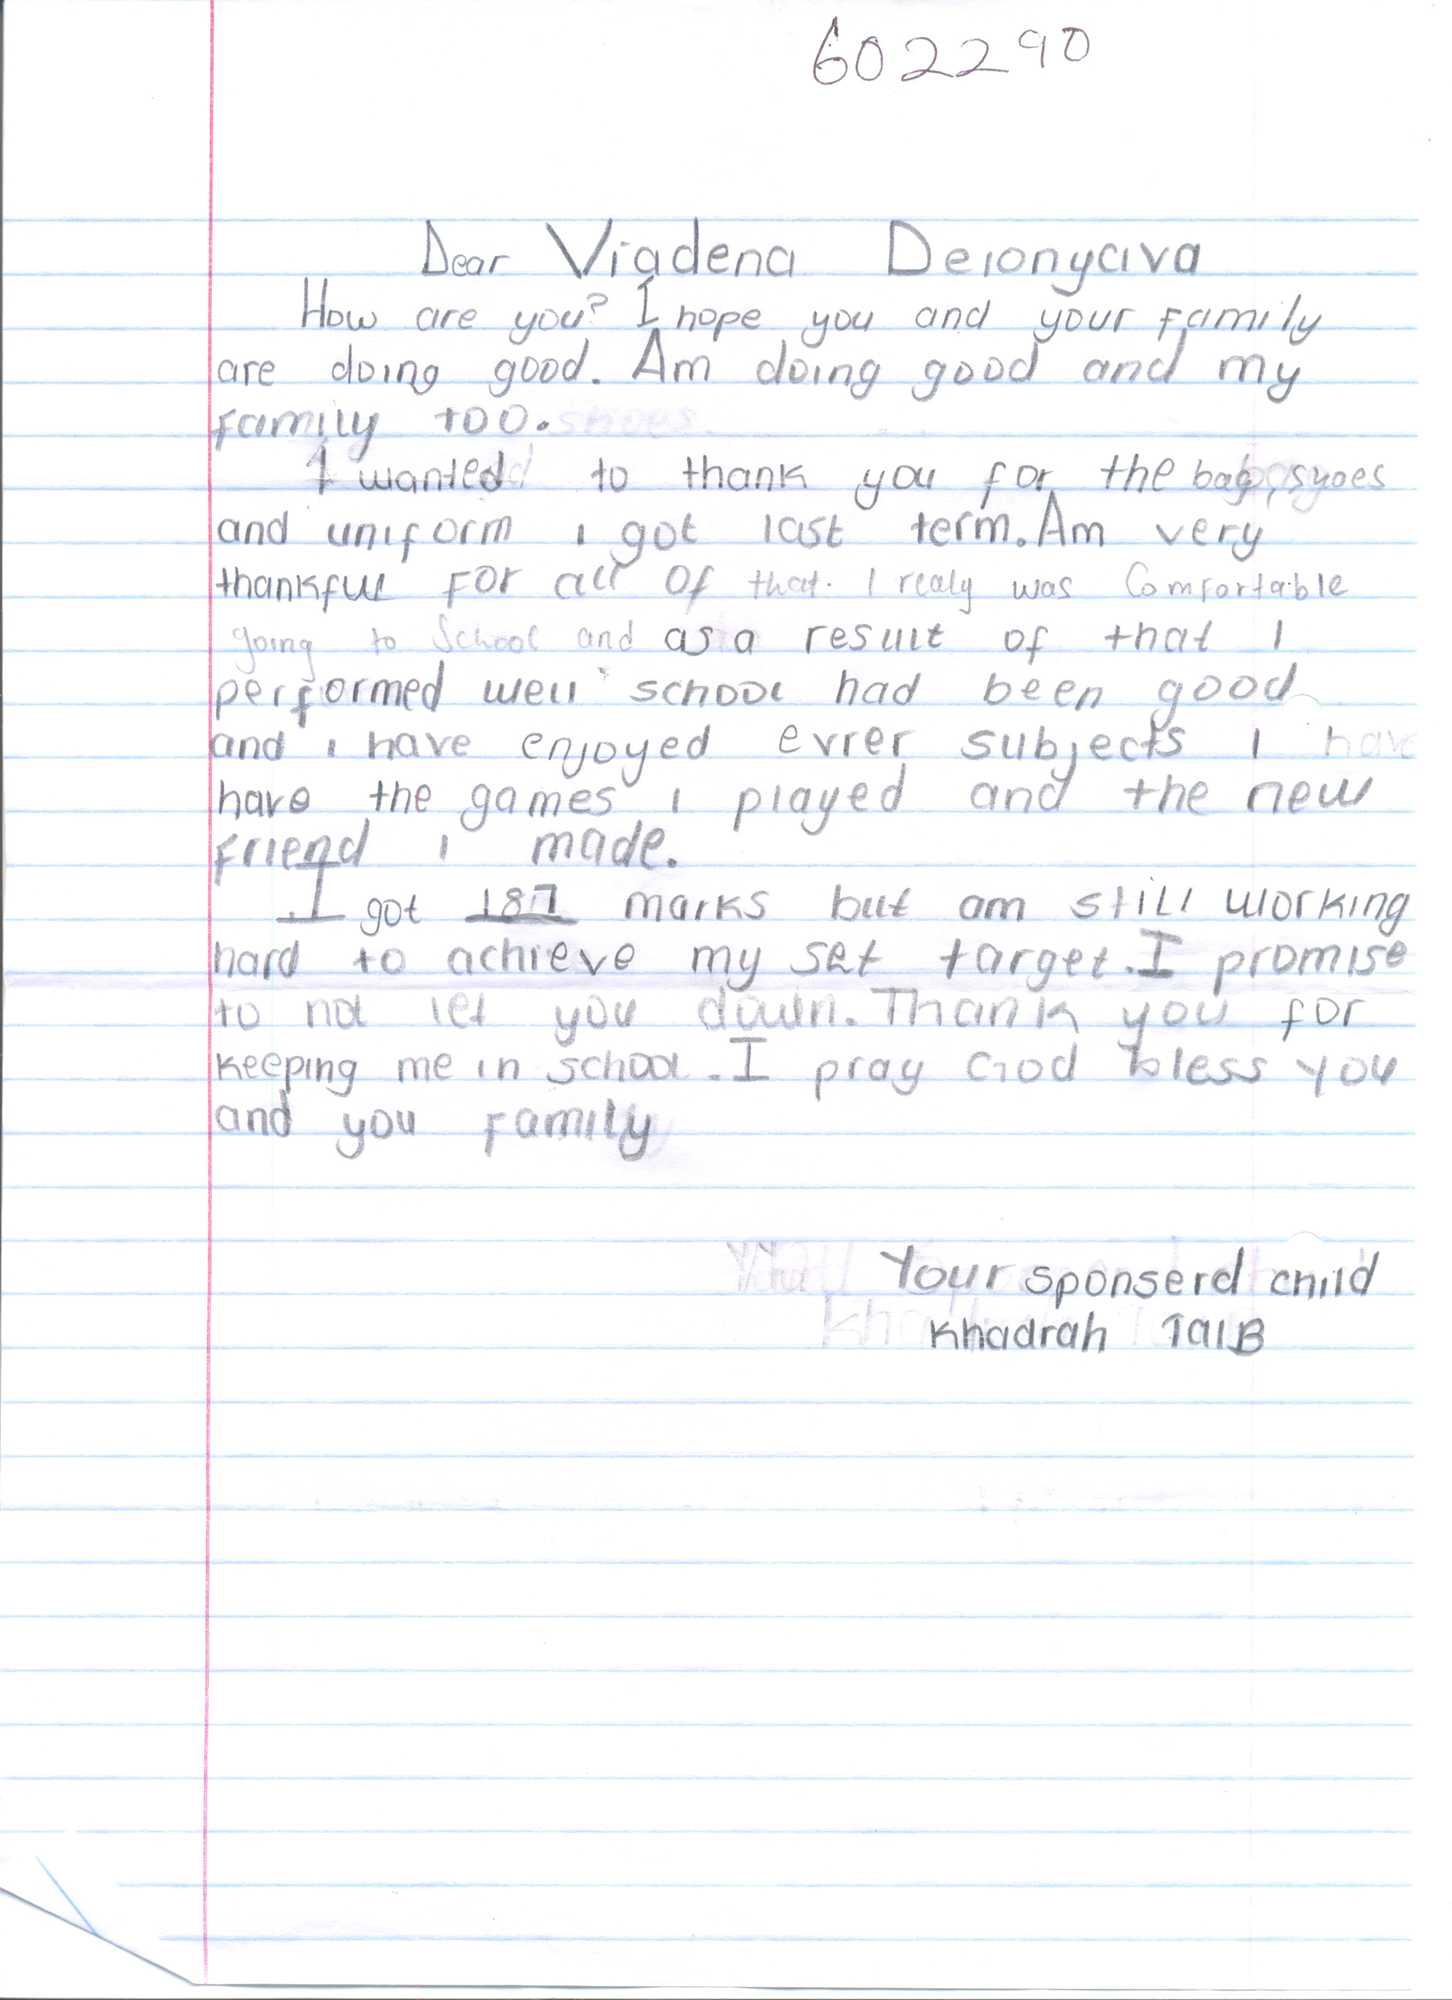 602290
Dear Viadena Deionyaiva
How are you? I hope you and your family
are doing good. Am doing good and my
family too.
I wanted to thank you for the bag, shoes
and uniform i got last term. Am very
thankful For all of that. I realy was Comfortable
going to School and as a result of that I
performed well school had been good
and i have enjoyed evrer subjects I have
have the games i played and the new
friend i made.
I got 187 marks but am still working
hard to achieve my set target. I promise
to not let you down. Thank you for
keeping me in school. I pray God bless you
and you family
Your sponserd child
Khadrah TaIB